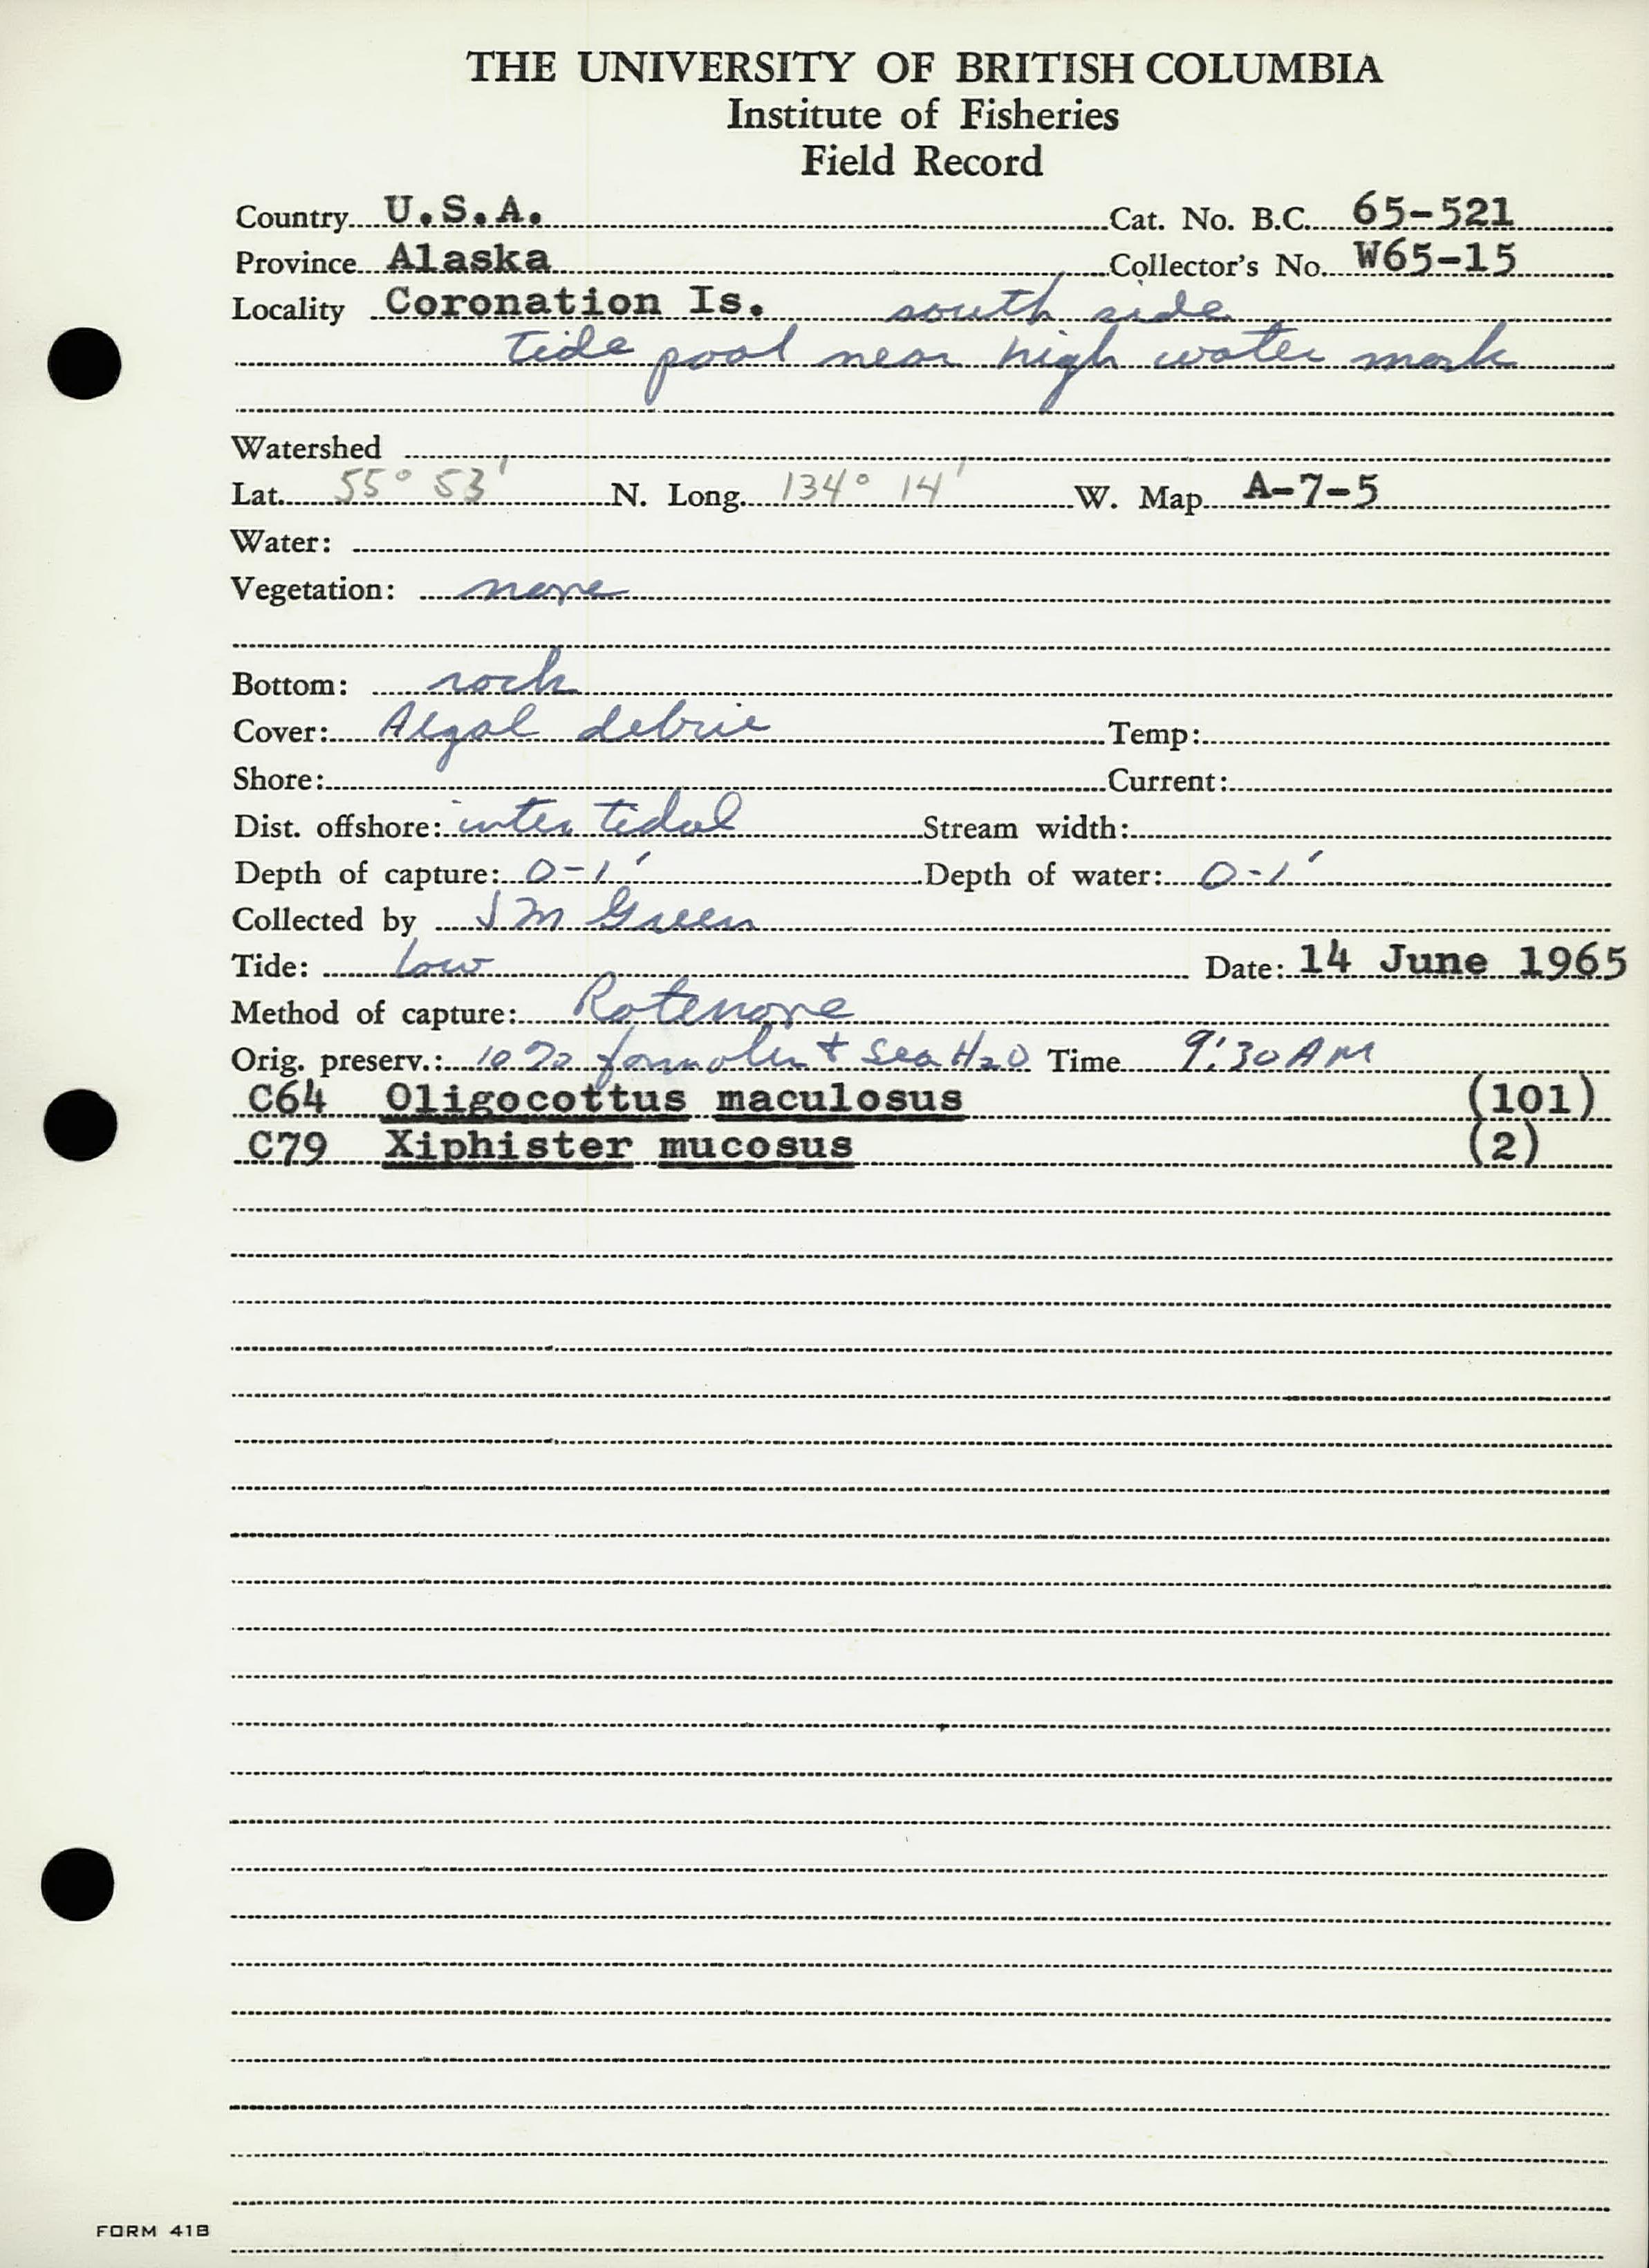 THE UNIVERSITY OF BRITISH COLUMBIA
Institute of Fisheries
Field Record
Country U.S.A. Cat. No. B.C. 65-521
Province Alaska Collector's No. W65-15
Locality Coronation Is. south side
tide pool near high water mark
Watershed
Lat. 55° 53' N. Long. 134° 14' W. Map A-7-5
Water:
Vegetation: none
Bottom: rock
Cover: Algal debris Temp:
Shore: Current:
Dist. offshore: inter tidal Stream width:
Depth of capture: 0-1' Depth of water: 0-1'
Collected by J M Green
Tide: Low Date: 14 June 1965
Method of capture: Rotenone
Orig. preserv.: 10% formalin + sea H2O Time 9:30 AM
C64 Oligocottus maculosus (101)
C79 Xiphister mucosus (2)
FORM 41B